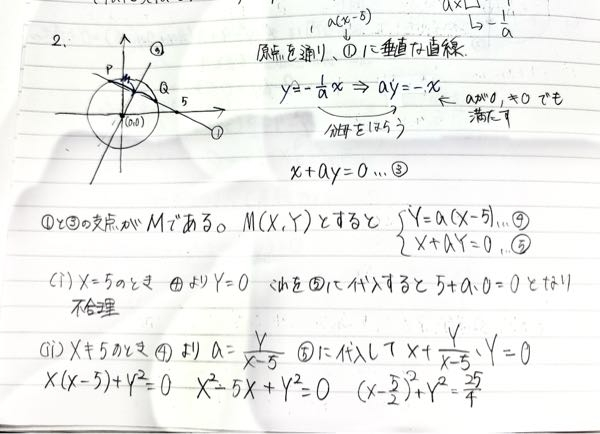 a(x-5)
2.
P
M
Q
5
(0,0)
①
③
原点を通り、①に垂直な直線
y=-1/a x ⇒ ay=-x
← aが0, ≠0でも
満たす
分母をはらう
x+ay=0…③
①と③の交点がMである。M(X,Y)とすると { Y=a(X-5)…④
X+aY=0…⑤
(i) X=5のとき ④よりY=0 これを⑤に代入すると5+a・0=0となり
不合理
(ii) X≠5のとき④より a=Y/(X-5) ⑤に代入して X+Y/(X-5)・Y=0
X(X-5)+Y²=0 X²-5X+Y²=0 (X-5/2)²+Y²=25/4